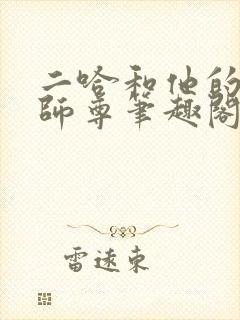 二哈和他的
師尊筆趣閣
雷遠東